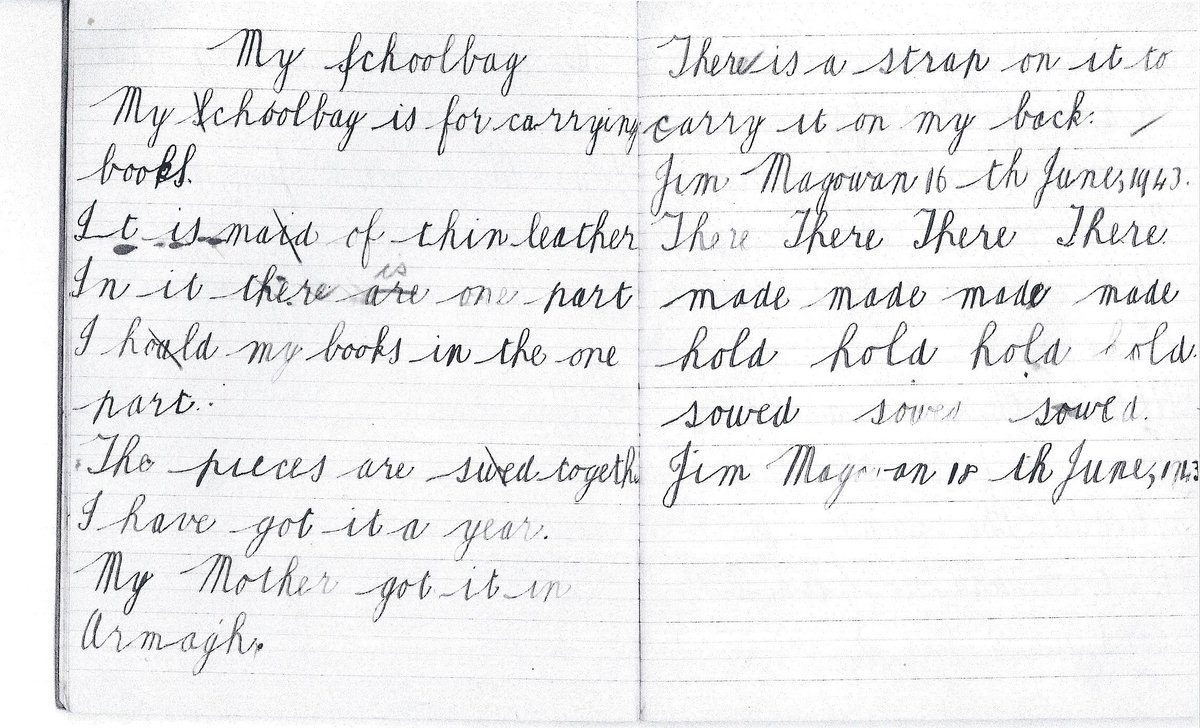 My Schoolbag
My Schoolbag is for carrying
books.
It is maid of thin leather
In it there are is one part
I hould my books in the one
part.
The pieces are swed togeth
I have got it a year.
My Mother got it in
Armagh.
There is a strap on it to
carry it on my back.
Jim Magowan 16 th June, 1943.
There There There There
made made made made
hold hold hold hold.
sowed sowed sowed.
Jim Magowan 18 th June, 1943